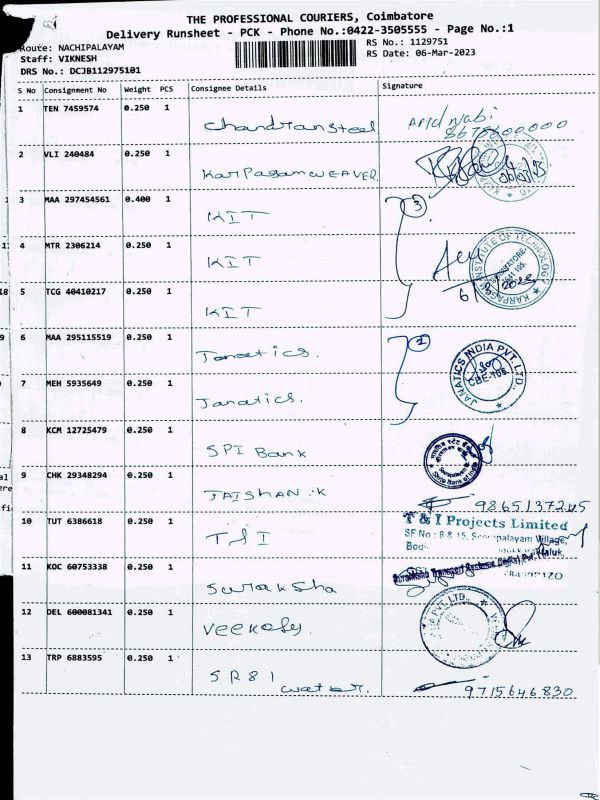 THE PROFESSIONAL COURIERS, Coimbatore
Delivery Runsheet - PCK - Phone No.:0422-3505555 - Page No.:1
Route: NACHIPALAYAM
RS No.: 1129751
Staff: VIKNESH
RS Date: 06-Mar-2023
DRS No.: DCJB112975101
S No Consignment No Weight PCS Consignee Details Signature
1 TEN 7459574 0.250 1 Chandran Steel
2 VLI 240484 0.250 1 Karpagam WEAVER
3 MAA 297454561 0.400 1 KIT 3
4 MTR 2306214 0.250 1 KIT
KARPAGAM INSTITUTE OF TECHNOLOGY
COIMBATORE-
641 105.
5 TCG 40410217 0.250 1 KIT
6 MAA 295115519 0.250 1 Janatics. 2
JANATICS INDIA PVT. LTD.,
CBE-105.
7 MEH 5935649 0.250 1 Janatics.
8 KCM 12725479 0.250 1 SPI Bank
State Bank of India
9 CHK 29348294 0.250 1 JAISHAN.K
9865137245
10 TUT 6386618 0.250 1 TSI
T & I Projects Limited
SF No : 8 & 15, Village,
Taluk,
11 KOC 60753338 0.250 1 Suraksha
12 DEL 600081341 0.250 1
PVT. LTD.,
13 TRP 6883595 0.250 1 SR81
water.
9715646830